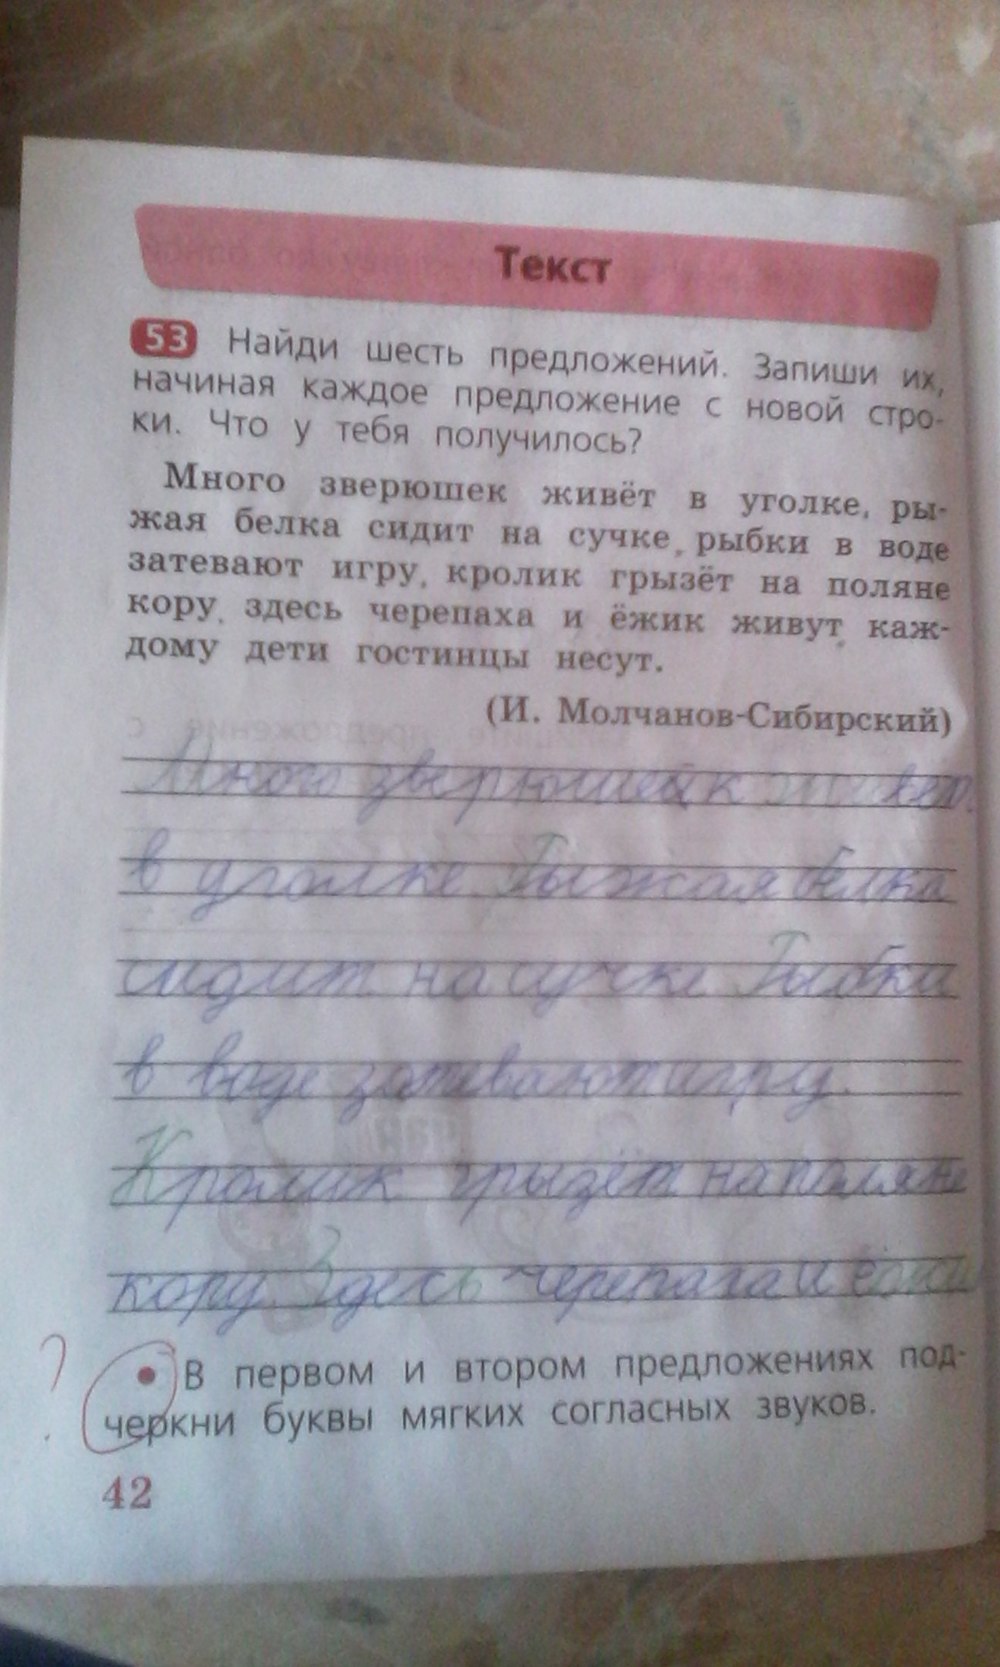 Текст
53 Найди шесть предложений. Запиши их,
начиная каждое предложение с новой стро-
ки. Что у тебя получилось?
Много зверюшек живёт в уголке, ры-
жая белка сидит на сучке, рыбки в воде
затевают игру, кролик грызёт на поляне
кору, здесь черепаха и ёжик живут, каж-
дому дети гостинцы несут.
(И. Молчанов-Сибирский)
Много зверюшек живёт
в уголке Рыжая белка
сидит на сучке Рыбки
в воде затевают игру.
Кролик грызёт на поляне
кору. Здесь черепаха и
? • В первом и втором предложениях под-
черкни буквы мягких согласных звуков.
42